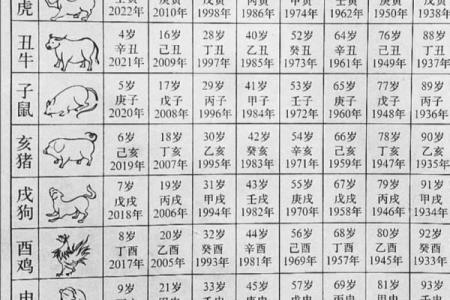 虎 2022年 2010年 1998年 1986年 1974年 1962年 1950年 1938年
丑 4岁 16岁 28岁 40岁 52岁 64岁 76岁 88岁
牛 辛丑 己丑 丁丑 乙丑 癸丑 辛丑 己丑 丁丑
2021年 2009年 1997年 1985年 1973年 1961年 1949年 1937年
子 5岁 17岁 29岁 41岁 53岁 65岁 77岁 89岁
鼠 庚子 戊子 丙子 甲子 壬子 庚子 戊子 丙子
2020年 2008年 1996年 1984年 1972年 1960年 1948年 1936年
亥 6岁 18岁 30岁 42岁 54岁 66岁 78岁 90岁
猪 己亥 丁亥 乙亥 癸亥 辛亥 己亥 丁亥 乙亥
2019年 2007年 1995年 1983年 1971年 1959年 1947年 1935年
戌 7岁 19岁 31岁 43岁 55岁 67岁 79岁 91岁
狗 戊戌 丙戌 甲戌 壬戌 庚戌 戊戌 丙戌 甲戌
2018年 2006年 1994年 1982年 1970年 1958年 1946年 1934年
酉 8岁 20岁 32岁 44岁 56岁 68岁 80岁 92岁
鸡 丁酉 乙酉 癸酉 辛酉 己酉 丁酉 乙酉 癸酉
2017年 2005年 1993年 1981年 1969年 1957年 1945年 1933年
申 9岁 21岁 33岁 45岁 57岁 69岁 81岁 93岁